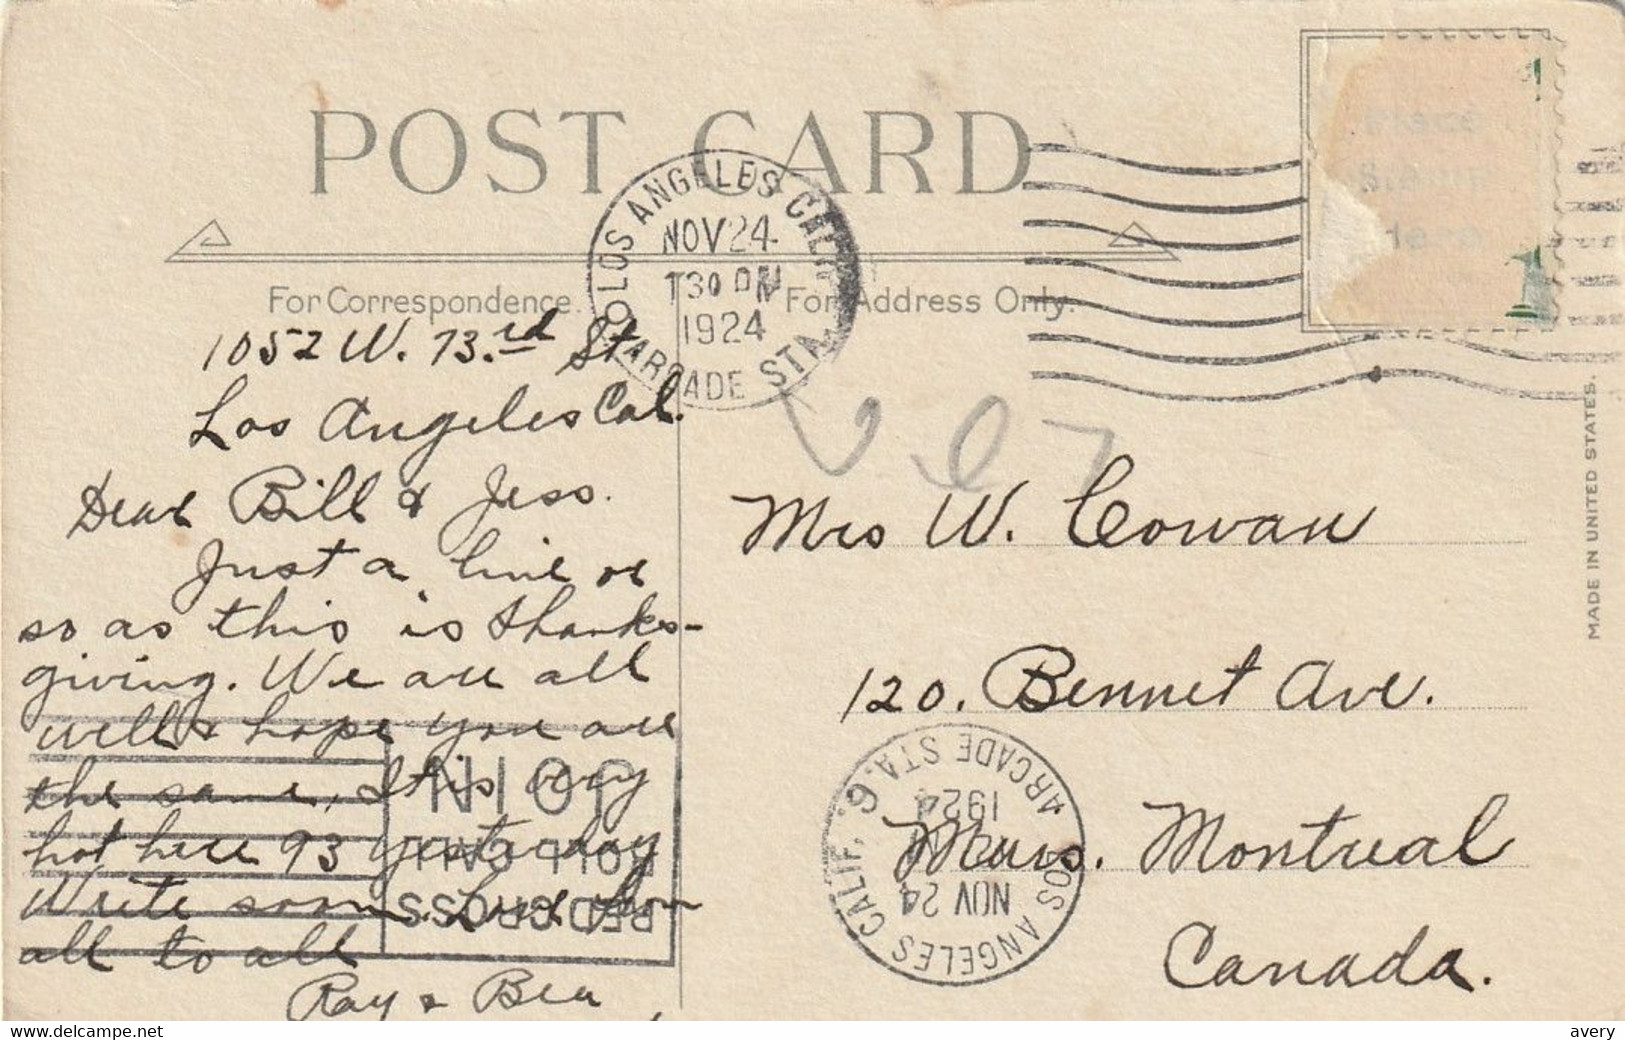 POST CARD
LOS ANGELES CALIF.
NOV 24
1924
ARCADE STA.
For Correspondence.
For Address Only.
1052 W. 73.rd St
Los Angeles Cal.
Dear Bill & Jess.
Just a line or
so as this is thanks-
giving. We are all
well & hope you are
the same, It is very
hot here 93 yesterday
Write soon. Love from
all to all
Ray & Bea
Mrs W. Cowan
120. Bennet Ave.
Montreal
Canada.
LOS ANGELES CALIF. 9
NOV 24
1924
ARCADE STA.
JOIN
ROLL CALL
RED CROSS
MADE IN UNITED STATES.
delcampe.net
avery